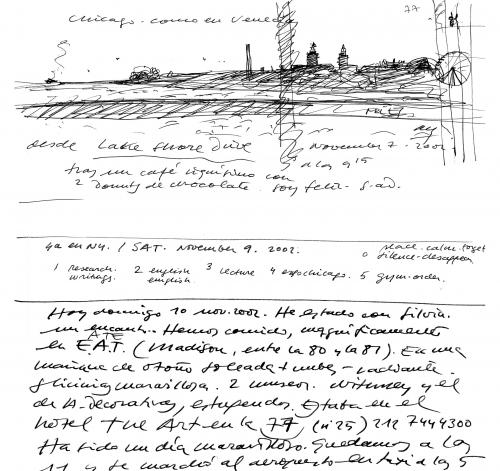 chicago. como en Venecia
77
desde Lake Shore Drive November 7. 2002.
a las 9 15
tras un café riquísimo con
2 Donuts de chocolate. soy feliz.
ya en NY. / SAT. November 9. 2002.
place. calm. forget
0 silence. disappear
1 research. 2 english 3 lecture 4 expochicago. 5 gym. order.
writings. english
Hoy domingo 10 nov. 2002. He estado con Silvia.
un encanto. Hemos comido, magníficamente
en E.A.T. (Madison, entre la 80 y la 81). En una
mañana de otoño soleada + nubes - radiante.
maravillosa. 2 museos. Whitney y el
de A. Decorativas, estupendos. Estaba en el
hotel The Art en la 77, (nº 25) 212 7444300
Ha sido un día maravilloso. Quedamos a las
11 y se marchó al aeropuerto en taxi a las 5